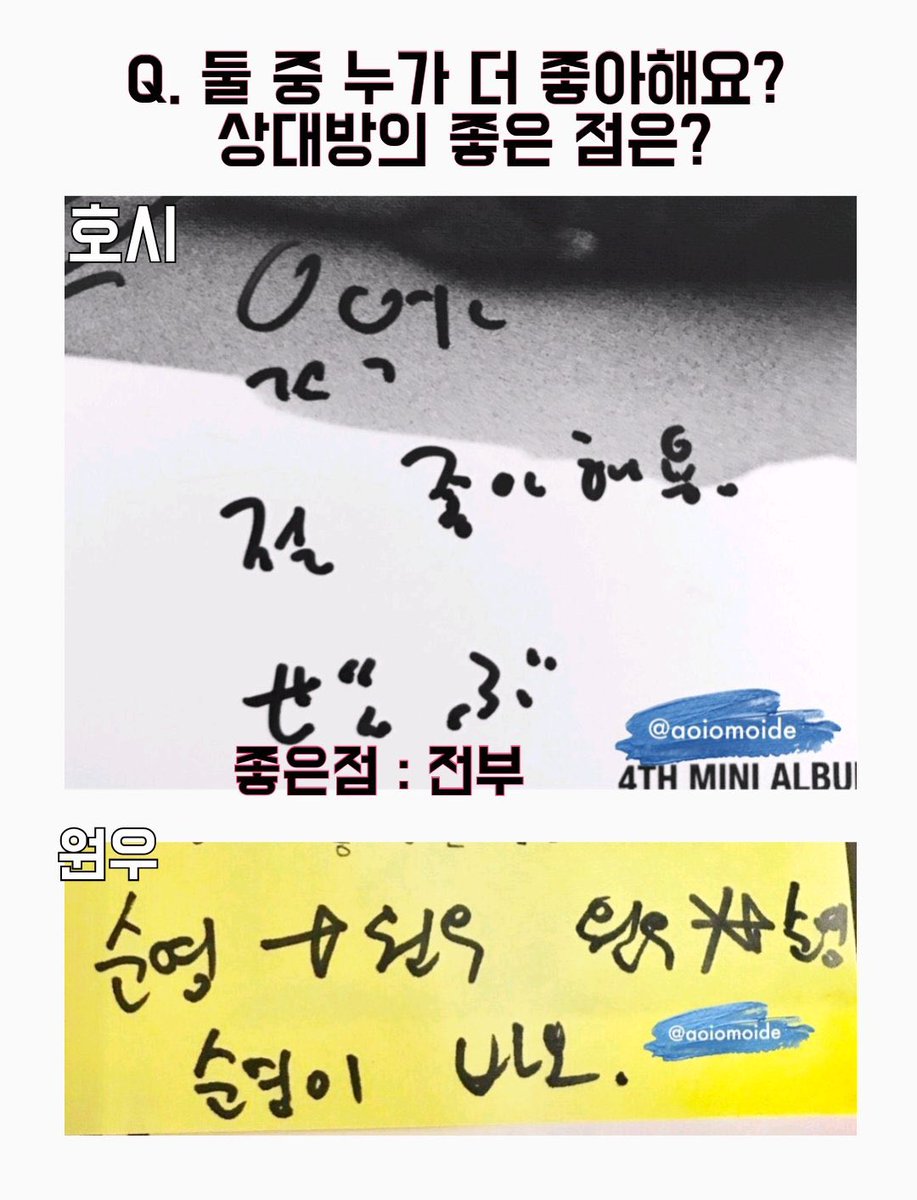 Q. 둘 중 누가 더 좋아해요?
상대방의 좋은 점은?
호시
좋아해용.
절
ぜんぶ
@aoiomoide
좋은점 : 전부
4TH MINI ALBU
원우
순영 → 원우 원우 순영
순영이
@aoiomoide